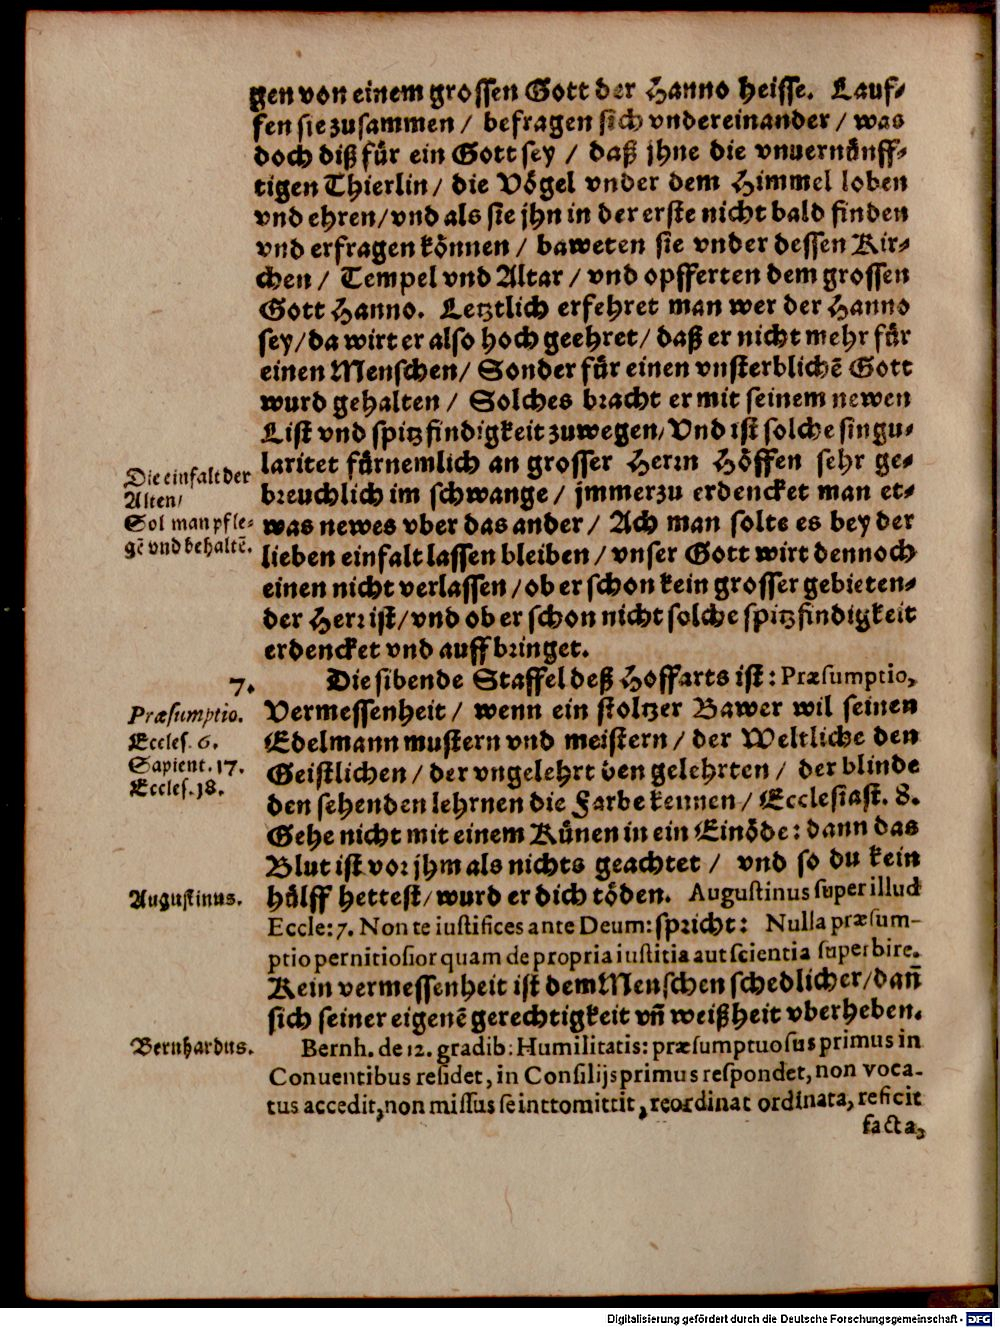 gen von einem grossen Gott der Hanno heisse. Lauf-
fen sie zusammen / befragen sich vndereinander / was
doch diß für ein Gott sey / daß jhne die vnuernünff-
tigen Thierlin / die Vögel vnder dem Himmel loben
vnd ehren / vnd als sie jhn in der erste nicht bald finden
vnd erfragen können / baweten sie vnder dessen Kir-
chen / Tempel vnd Altar / vnd opfferten dem grossen
Gott Hanno. Letztlich erfehret man wer der Hanno
sey / da wirt er also hoch geehret / daß er nicht mehr für
einen Menschen / Sonder für einen vnsterblichē Gott
wurd gehalten / Solches bracht er mit seinem newen
List vnd spitzfindigkeit zuwegen / Vnd ist solche singu-
laritet fürnemlich an grosser Herrn Höffen sehr ge-
breuchlich im schwange / jmmerzu erdencket man et-
was newes vber das ander / Ach man solte es bey der
lieben einfalt lassen bleiben / vnser Gott wirt dennoch
einen nicht verlassen / ob er schon kein grosser gebieten-
der Herr ist / vnd ob er schon nicht solche spitzfindigkeit
erdencket vnd auffbringet.
Die einfalt der
Alten /
Sol man pfle-
gē vnd behaltē.
Die sibende Staffel deß Hoffarts ist: Præsumptio,
Vermessenheit / wenn ein stoltzer Bawer wil seinen
Edelmann mustern vnd meistern / der Weltliche den
Geistlichen / der vngelehrt den gelehrten / der blinde
den sehenden lehrnen die Farbe kennen / Ecclesiast. 8.
Gehe nicht mit einem Künen in ein Einöde: dann das
Blut ist vor jhm als nichts geachtet / vnd so du kein
hülff hettest / wurd er dich töden. Augustinus super illud
Eccle: 7. Non te iustifices ante Deum: spricht: Nulla præsum-
ptio pernitiosior quam de propria iustitia aut scientia superbire.
Kein vermessenheit ist dem Menschen schedlicher / dañ
sich seiner eigenē gerechtigkeit vñ weißheit vberheben.
7.
Præsumptio.
Eccles. 6.
Sapient. 17.
Eccles. 18.
Augustinus.
Bernhardus.
Bernh. de 12. gradib: Humilitatis: præsumptuosus primus in
Conuentibus residet, in Consilijs primus respondet, non voca-
tus accedit, non missus se inttomittit, reordinat ordinata, reficit
facta,
Digitalisierung gefördert durch die Deutsche Forschungsgemeinschaft - DFG